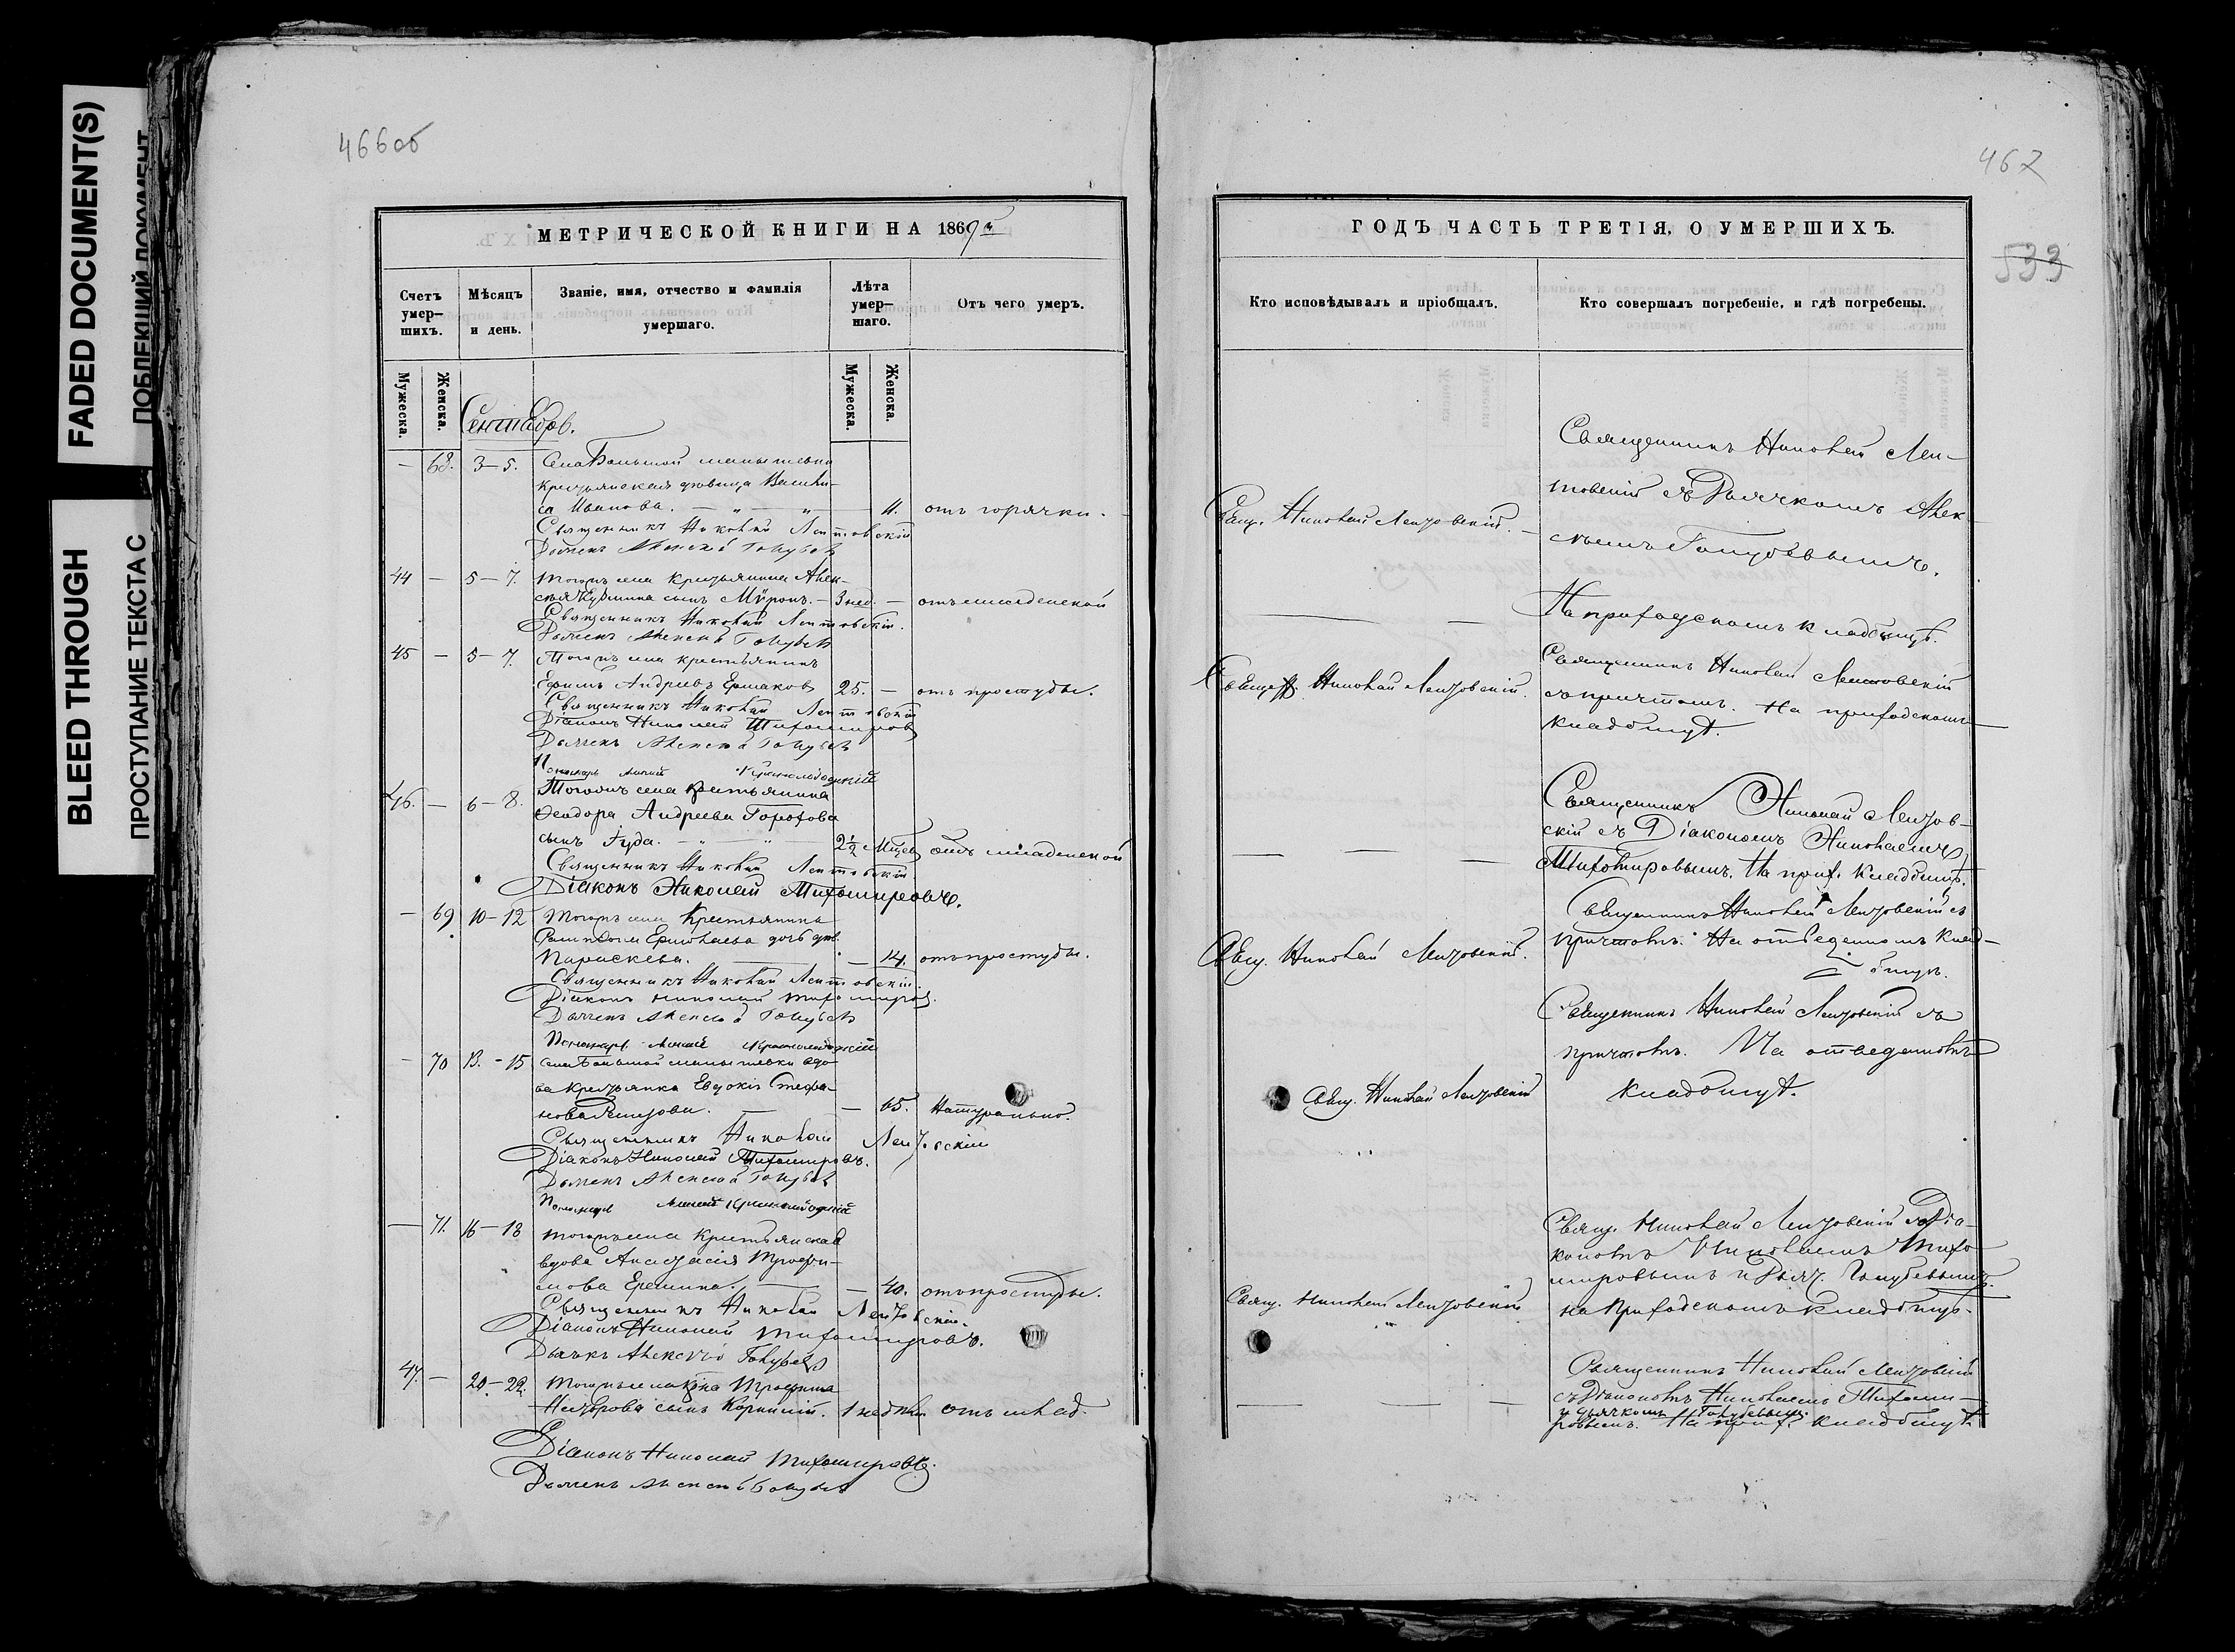 FADED DOCUMENT(S)
ПОБЛЕКШИЙ ДОКУМЕНТ
BLEED THROUGH
ПРОСТУПАНИЕ ТЕКСТА С
466об
МЕТРИЧЕСКОЙ КНИГИ НА 1869й
Счетъ умер-шихъ.
Мѣсяцъ и день.
Званіе, имя, отчество и фамилія умершаго.
Лѣта умер-шаго.
Отъ чего умеръ.
Мужеска.
Женска.
Мужеска.
Женска.
Сентябрь.
— 68. 3—5. Села Большой
крестьянская девица Васили-
са Иванова. — 11. отъ горячки.
Священникъ Николай Лентовскій
Дьячекъ Алексѣй Голубевъ
44 — 5—7. Тогожъ села крестьянина Алек-
сѣя Кузмина сынъ Мүронъ. — 3 нед. — отъ младенской
Священникъ Николай Лентовскій.
Дьячекъ Алексѣй Голубевъ
45 — 5—7. Тогожъ села крестьянинъ
Ефимъ Андреевъ Ермаковъ 25. — отъ простуды.
Священникъ Николай Лентовскій
Діаконъ Николай Тихомировъ
Дьячекъ Алексѣй Голубевъ
Пономарь
46. — 6—8. Тогожъ села крестьянина
Феодора Андреева Горохова
сынъ Іуда. 2½ Мѣсяц отъ младенской
Священникъ Николай Лентовскій
Діаконъ Николай Тихомировъ.
— 69 10—12 Тогожъ села Крестьянина
дочь дев.
Параскева. — 14. отъ простуды.
Священникъ Николай Лентовскій.
Діаконъ Николай Тихомировъ.
Дьячекъ Алексѣй Голубевъ
Пономарь
— 70 13.—15 Села Большой вдо-
ва крестьянка Евдокія Стефа-
нова — 65. Натурально.
Священникъ Николай Лентовскій
Діаконъ Николай Тихомировъ.
Дьячекъ Алексѣй Голубевъ
Пономарь
— 71. 16—18 Тогожъ села Крестьянская
вдова Анастасія Трофи-
мова Еремина. — 40. отъ простуды.
Священникъ Николай Лентовскій.
Діаконъ Николай Тихомировъ.
Дьячекъ Алексѣй Голубевъ
47. — 20—22. Тогожъ села Трофима
сынъ Корнилій. 1 недѣли отъ млад.
Діаконъ Николай Тихомировъ.
Дьячекъ Алексѣй Голубевъ
467
533
ГОДЪ ЧАСТЬ ТРЕТІЯ, О УМЕРШИХЪ.
Кто исповѣдывалъ и пріобщалъ.
Кто совершалъ погребеніе, и гдѣ погребены.
Священникъ Николай Лен-
товскій съ Дьячкомъ Алек-
Свящ. Николай Лентовскій. —
сѣемъ Голубевымъ.
На приходскомъ кладбищѣ.
Священникъ Николай Лентовскій
Священ. Николай Лентовскій.
съ причтомъ. На приходскомъ
кладбищѣ.
Священникъ Николай Лентов-
скій съ Діакономъ Николаемъ
Тихомировымъ. На прих. кладбищѣ.
Священникъ Николай Лентовскій съ
Свящ. Николай Лентовскій.
причтомъ. На отведенномъ клад-
бищѣ.
Священникъ Николай Лентовскій съ
причтомъ. На отведенномъ
Свящ. Николай Лентовскій
кладбищѣ.
Свящ. Николай Лентовскій съ Діа-
кономъ Николаемъ Тихо
мировымъ и Дьяч. Голубевымъ.
Свящ. Николай Лентовскій
на приходскомъ кладбищѣ.
Священникъ Николай Лентовскій
съ Діакономъ Николаемъ Тихоми-
и дьячкомъ Голубевымъ.
ровымъ. На прих. кладбищѣ